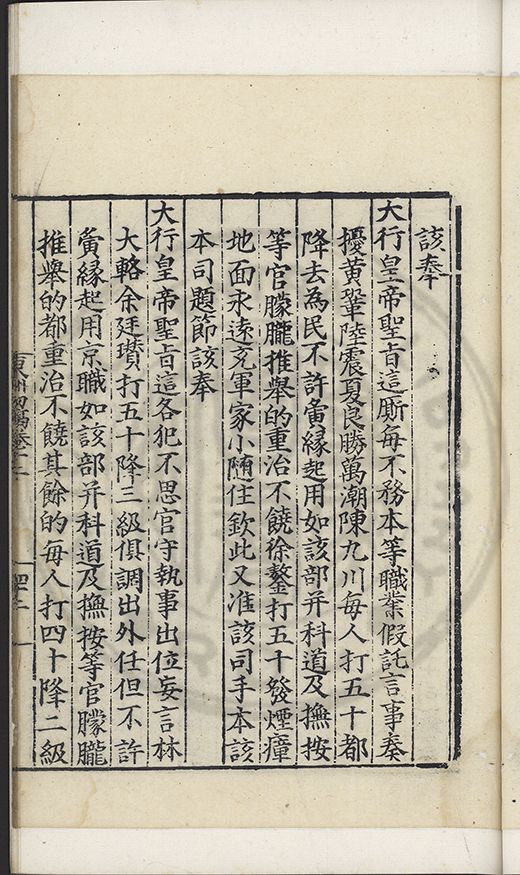 該奉
大行皇帝聖旨這厮每不務本等職業假託言事奏
擾黃鞏陸震夏良勝萬潮陳九川每人打五十都
降去為民不許夤緣起用如該部并科道及撫按
等官朦朧推舉的重治不饒徐鏊打五十發煙瘴
地面永遠充軍家小隨住欽此又准該司手本該
本司題節該奉
大行皇帝聖旨這各犯不思官守執事出位妄言林
大輅余廷瓚打五十降三級俱調出外任但不許
夤緣起用京職如該部并科道及撫按等官朦朧
推舉的都重治不饒其餘的每人打四十降二級
東洲初稿卷十二
四十二